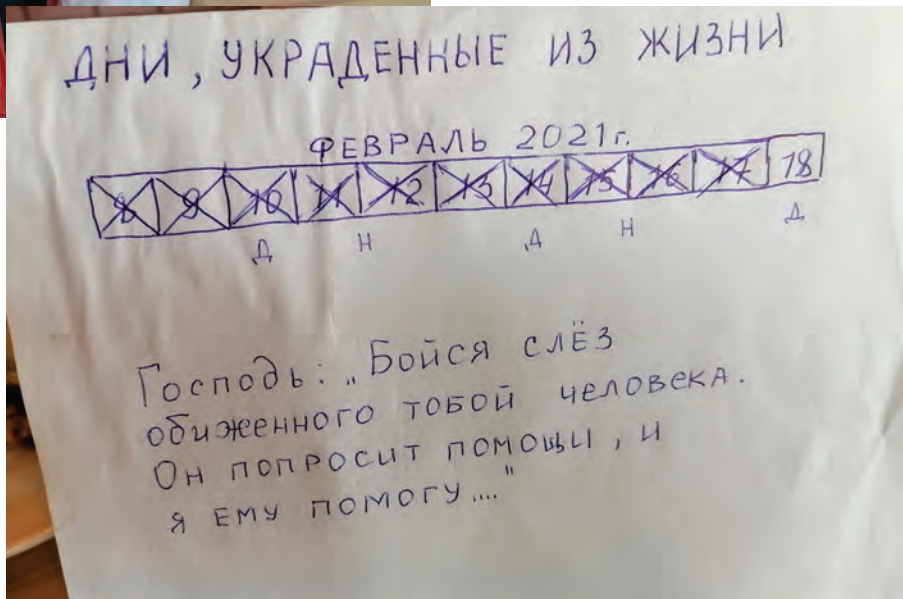 ДНИ, УКРАДЕННЫЕ ИЗ ЖИЗНИ
ФЕВРАЛЬ 2021г.
8 9 10 11 12 13 14 15 16 17 18
Д Н Д Н Д
Господь: „Бойся слёз
обиженного тобой человека.
Он попросит помощи, и
я ему помогу...."